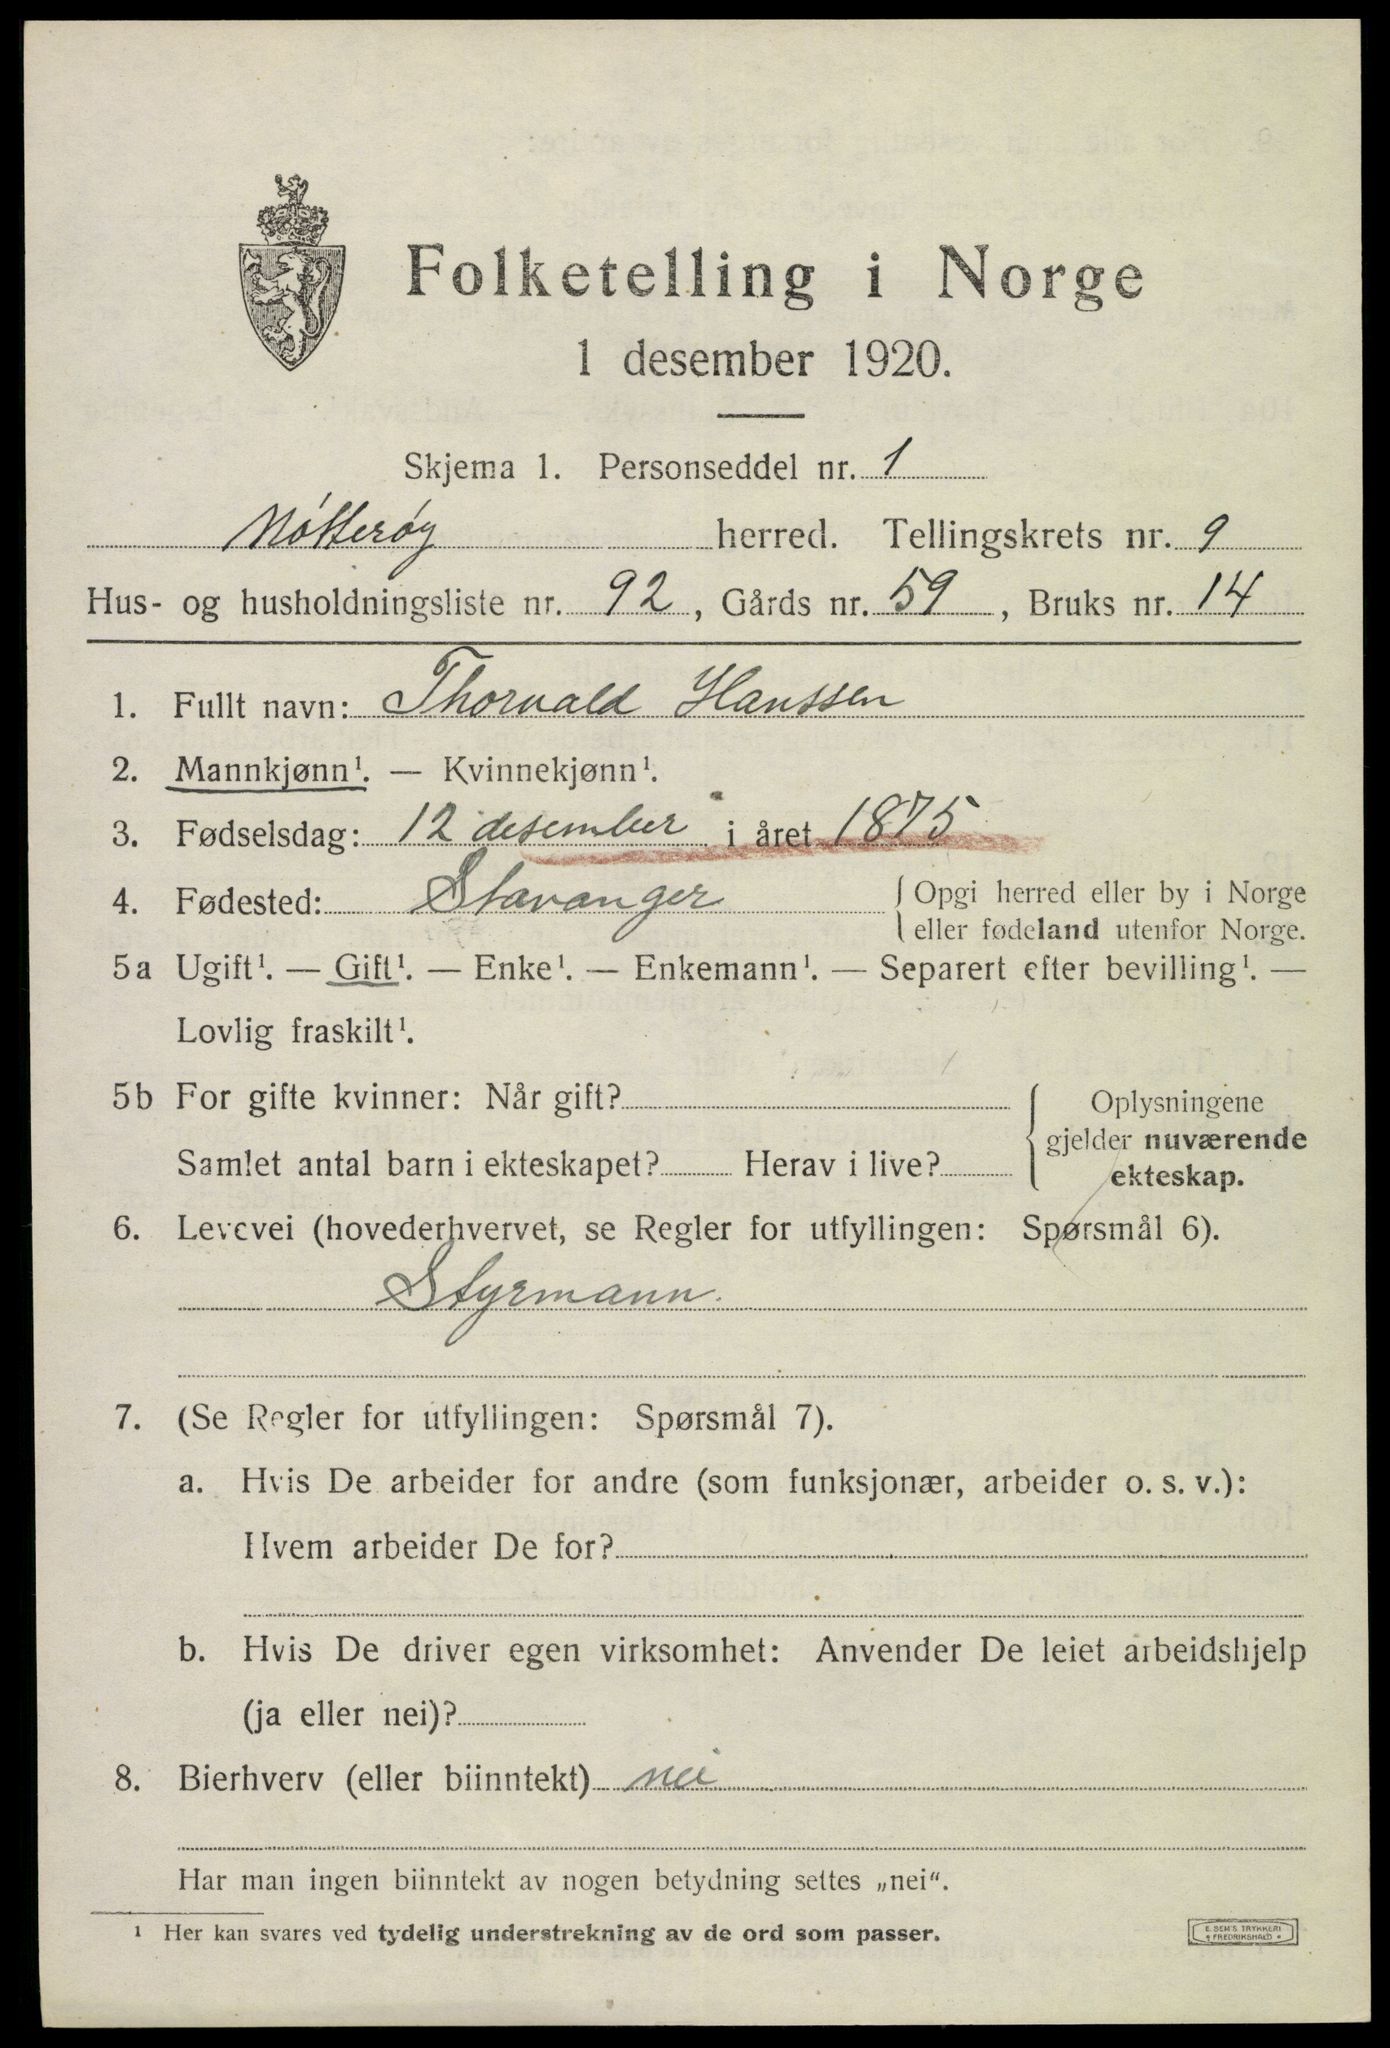 Folketelling i Norge
1 desember 1920.
Skjema 1. Personseddel nr. 1
Nótterøy herred. Tellingskrets nr. 9
Hus- og husholdningsliste nr. 92, Gårds nr. 59, Bruks nr. 14
1. Fullt navn: Thorvald Hanssen
2. Mannkjønn¹. — Kvinnekjønn¹.
3. Fødselsdag: 12 desember i året 1875
4. Fødested: Stavanger { Opgi herred eller by i Norge
eller fødeland utenfor Norge.
5a Ugift¹. — Gift¹. — Enke¹. — Enkemann¹. — Separert efter bevilling¹. —
Lovlig fraskilt¹.
5b For gifte kvinner: Når gift? { Oplysningene
gjelder nuværende
Samlet antal barn i ekteskapet? Herav i live? ekteskap.
6. Levevei (hovederhvervet, se Regler for utfyllingen: Spørsmål 6).
Styrmann.
7. (Se Regler for utfyllingen: Spørsmål 7).
a. Hvis De arbeider for andre (som funksjonær, arbeider o. s. v.):
Hvem arbeider De for?
b. Hvis De driver egen virksomhet: Anvender De leiet arbeidshjelp
(ja eller nei)?
8. Bierhverv (eller biinntekt) nei
Har man ingen biinntekt av nogen betydning settes „nei“.
¹ Her kan svares ved tydelig understrekning av de ord som passer.
E. SEM'S TRYKKERI
* FREDRIKSHALD *